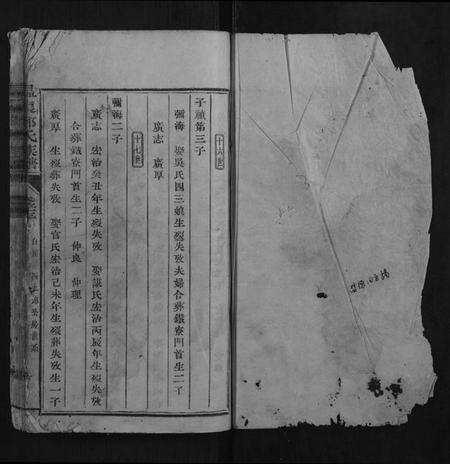 十六世
子願第三子
彌海 娶吳氏四三娘生歿失攷夫婦合葬鐵寮門首生二子
廣志 廣厚
十七世
彌海二子
廣志 宏治癸丑年生歿失攷 娶謝氏宏治丙辰年生歿失攷
合葬鐵寮門首生二子 仲良 仲理
廣厚 生歿葬失攷 娶官氏宏治己未年生歿葬失攷生一子